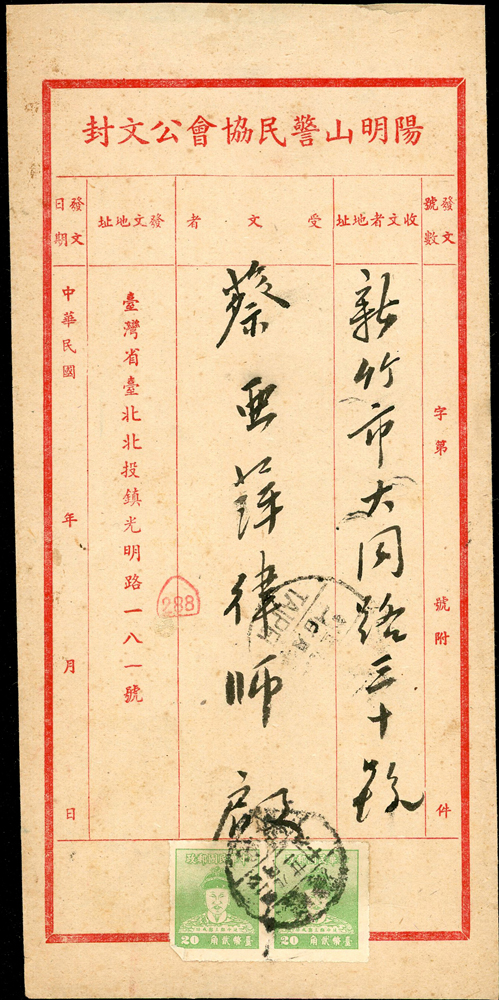 陽明山警民協會公文封
發文號數
字第 號附 件
收文者地址
新竹市大同路三十號
受文者
蔡亞萍律師 殿
發文地址
臺灣省臺北北投鎮光明路一八一號
發文日期
中華民國 年 月 日
288
TAIPEI
臺幣貳角
20
臺幣貳角
20